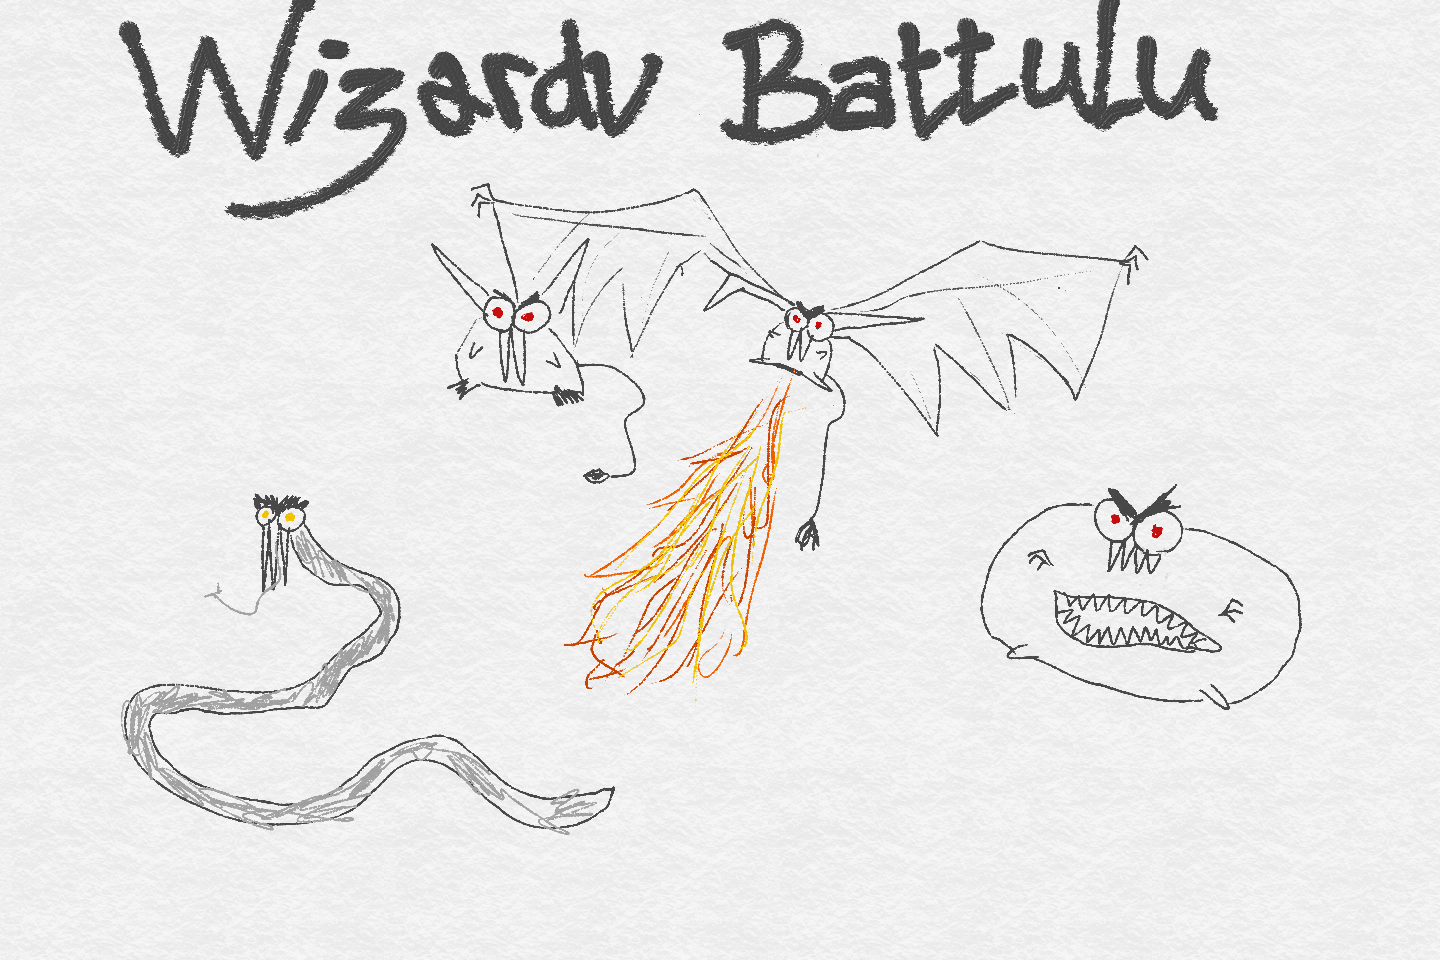 Wizardu Battulu